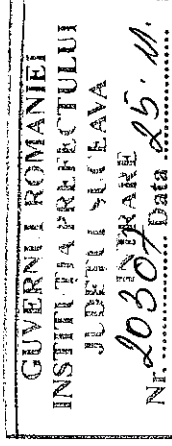 GUVERNUL ROMANIEI
INSTITUŢIA PREFECTULUI
JUDEŢUL SUCEAVA
INTRARE
Nr. 20307 Data 25.11.